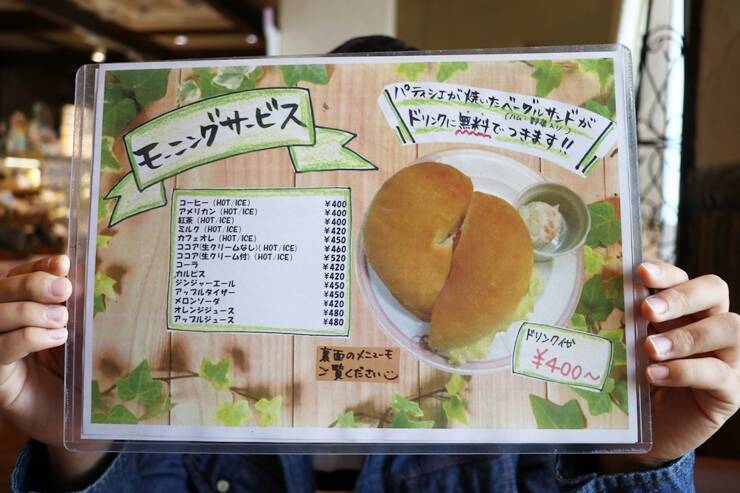 モーニングサービス
パティシエが焼いたベーグルサンドが
(ハム・野菜入り)
ドリンクに無料でつきます!!
コーヒー (HOT/ICE) ¥400
アメリカン (HOT/ICE) ¥400
紅茶 (HOT/ICE) ¥400
ミルク (HOT/ICE) ¥420
カフェオレ (HOT/ICE) ¥450
ココア(生クリームなし)(HOT/ICE) ¥460
ココア(生クリーム付)(HOT/ICE) ¥520
コーラ ¥420
カルピス ¥420
ジンジャーエール ¥450
アップルタイザー ¥450
メロンソーダ ¥420
オレンジジュース ¥480
アップルジュース ¥480
ドリンク代
¥400〜
裏面のメニューモ
ご覧ください